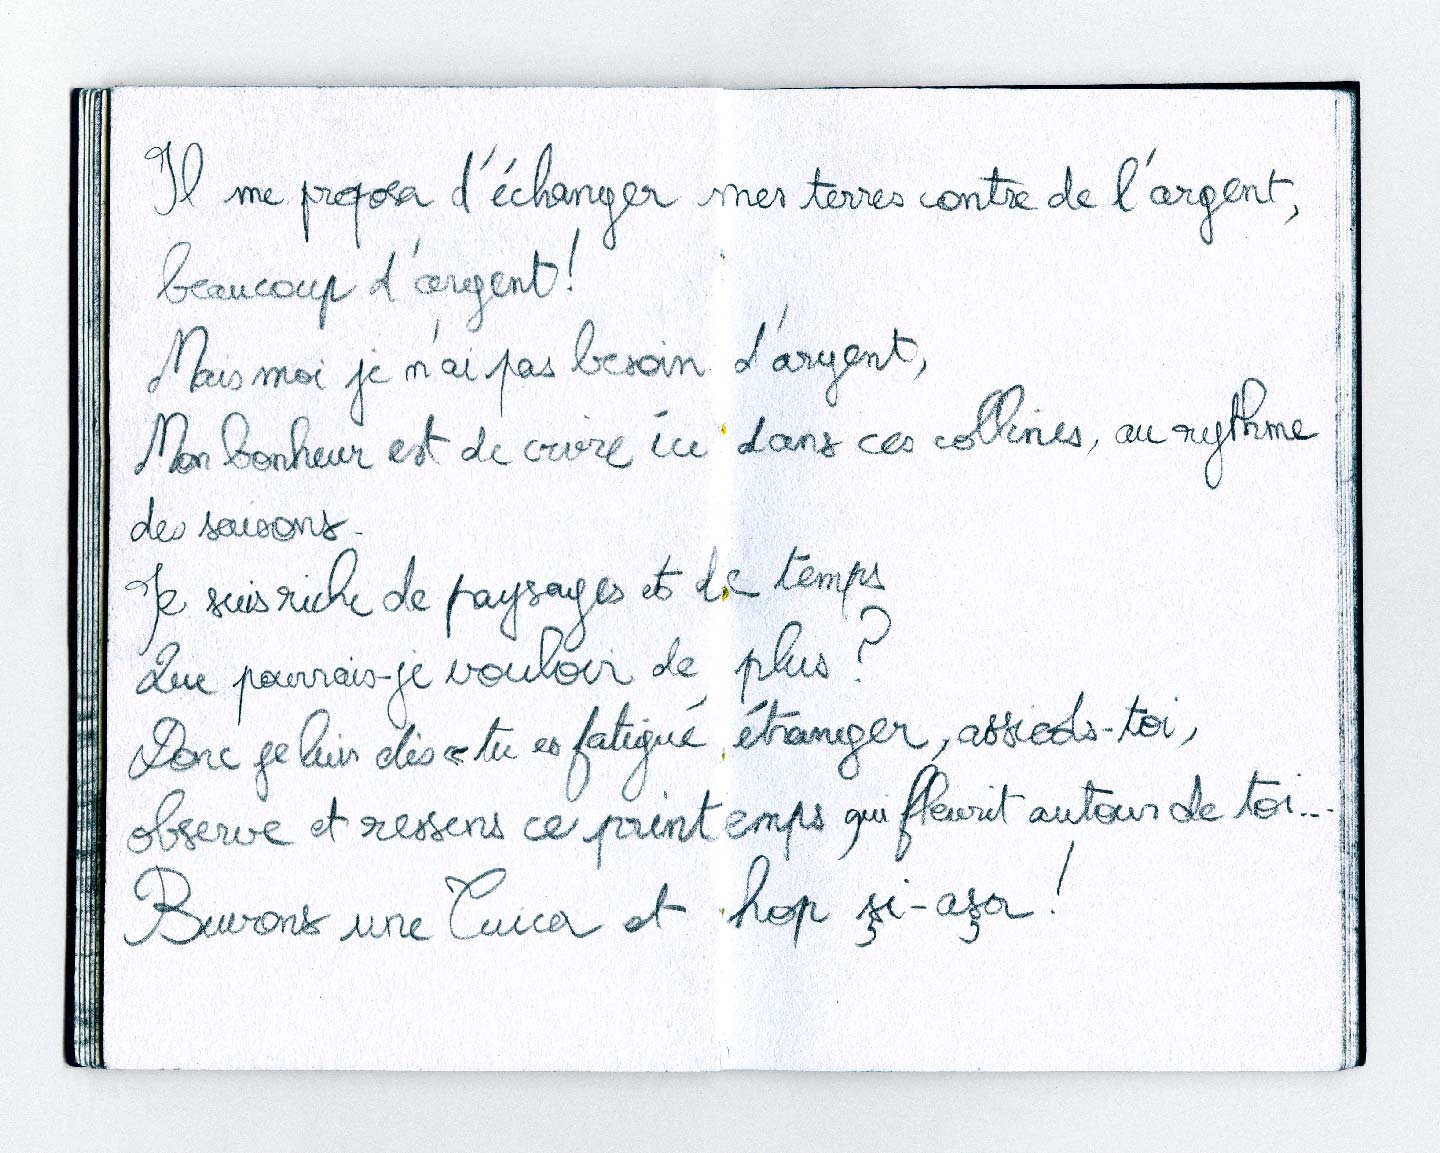 Il me proposa d'échanger mes terres contre de l'argent,
beaucoup d'argent!
Mais moi je n'ai pas besoin d'argent,
Mon bonheur est de vivre ici dans ces collines, au rythme
des saisons.
Je suis riche de paysages et de temps
Que pourrais-je vouloir de plus ?
Donc je lui dis « tu es fatigué étranger, assieds-toi,
observe et ressens ce printemps qui fleurit autour de toi...
Buvons une Țuica et hop și-așa !